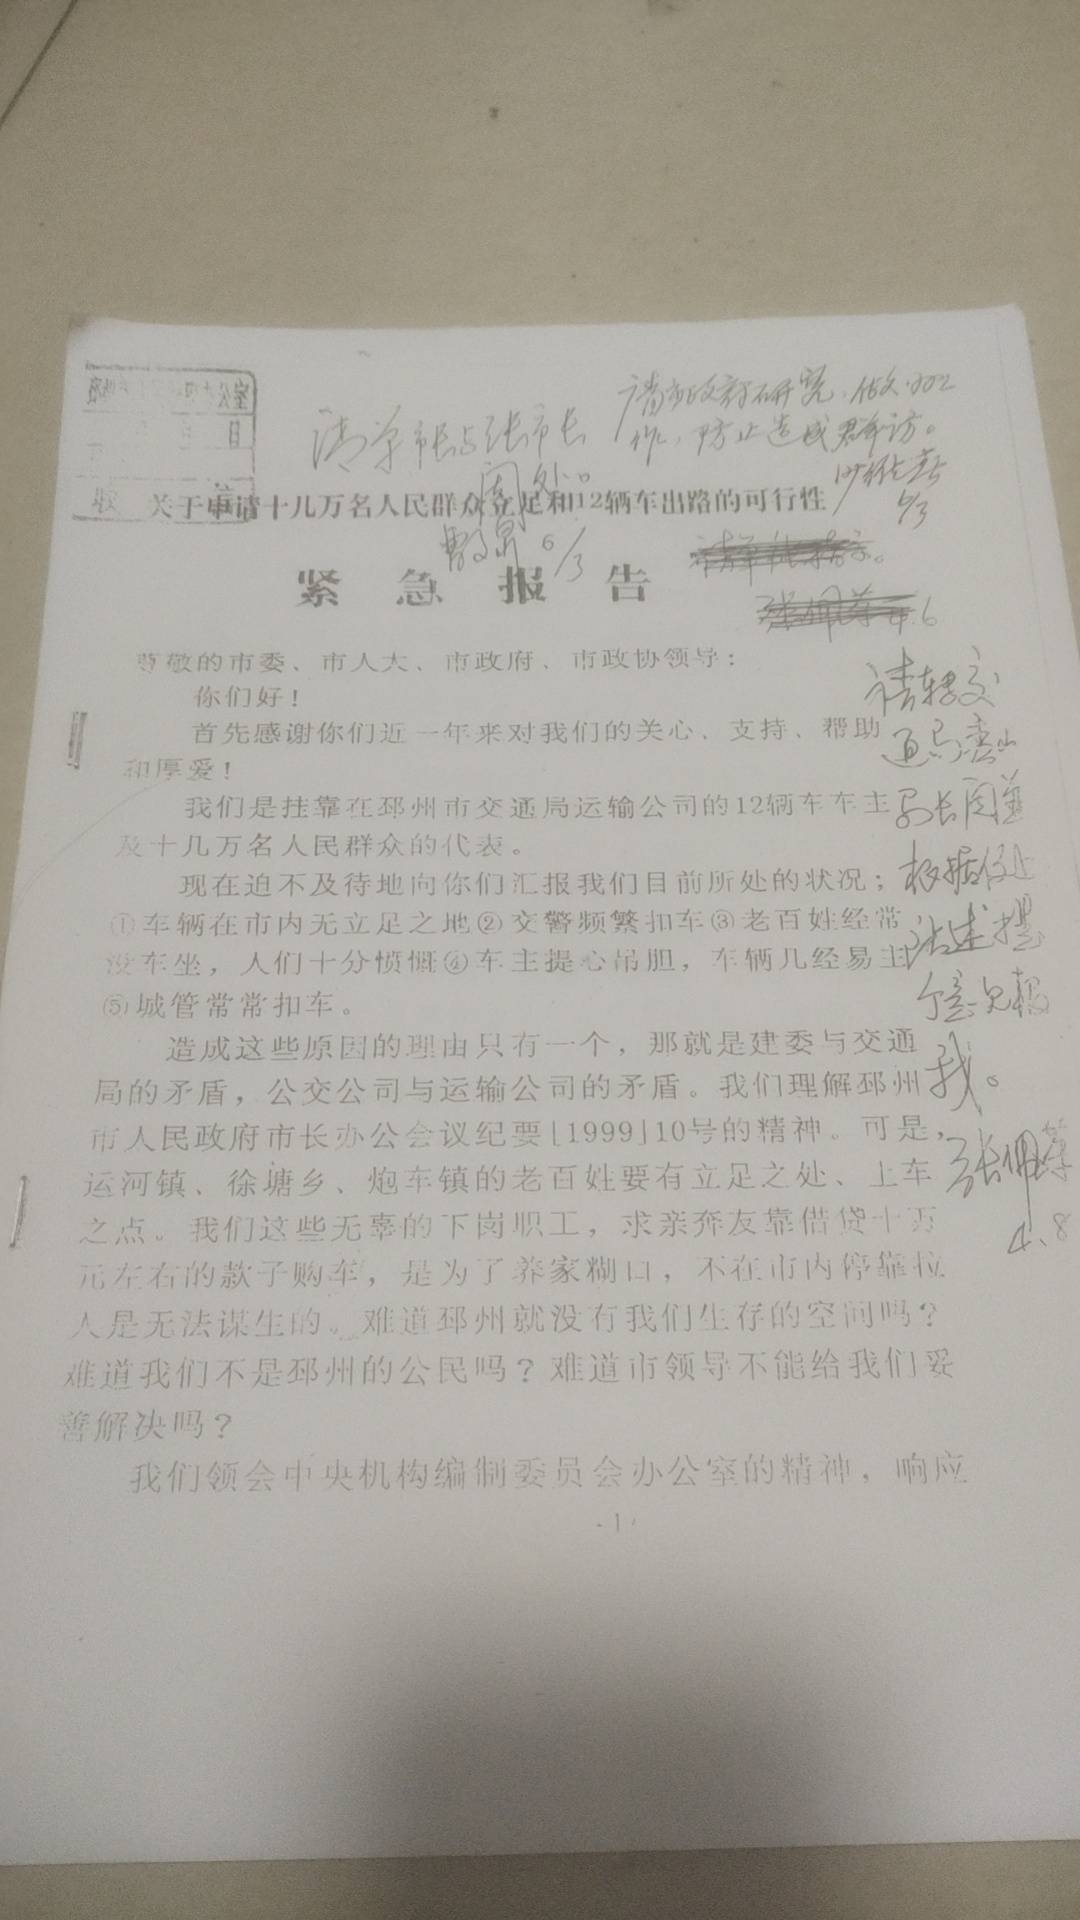 公室
日
收
请市政府研究
作，防止造成群访。
6/3
阅处。
6/3
关于申请十几万名人民群众立足和12辆车出路的可行性
紧急报告
4.6
尊敬的市委、市人大、市政府、市政协领导：
你们好！
首先感谢你们近一年来对我们的关心、支持、帮助
和厚爱！
我们是挂靠在邳州市交通局运输公司的12辆车车主
及十几万名人民群众的代表。
现在迫不及待地向你们汇报我们目前所处的状况；
①车辆在市内无立足之地②交警频繁扣车③老百姓经常
没车坐，人们十分愤慨④车主提心吊胆，车辆几经易主
⑤城管常常扣车。
造成这些原因的理由只有一个，那就是建委与交通
局的矛盾，公交公司与运输公司的矛盾。我们理解邳州
市人民政府市长办公会议纪要[1999]10号的精神。可是，
运河镇、徐塘乡、炮车镇的老百姓要有立足之处、上车
之点。我们这些无辜的下岗职工，求亲奔友靠借贷十万
元左右的款子购车，是为了养家糊口，不在市内停靠拉
人是无法谋生的。难道邳州就没有我们生存的空间吗？
难道我们不是邳州的公民吗？难道市领导不能给我们妥
善解决吗？
我们领会中央机构编制委员会办公室的精神，响应
-1-
请转交
局长阅并
根据
法述提
个意见报
我。
张佩
4.8